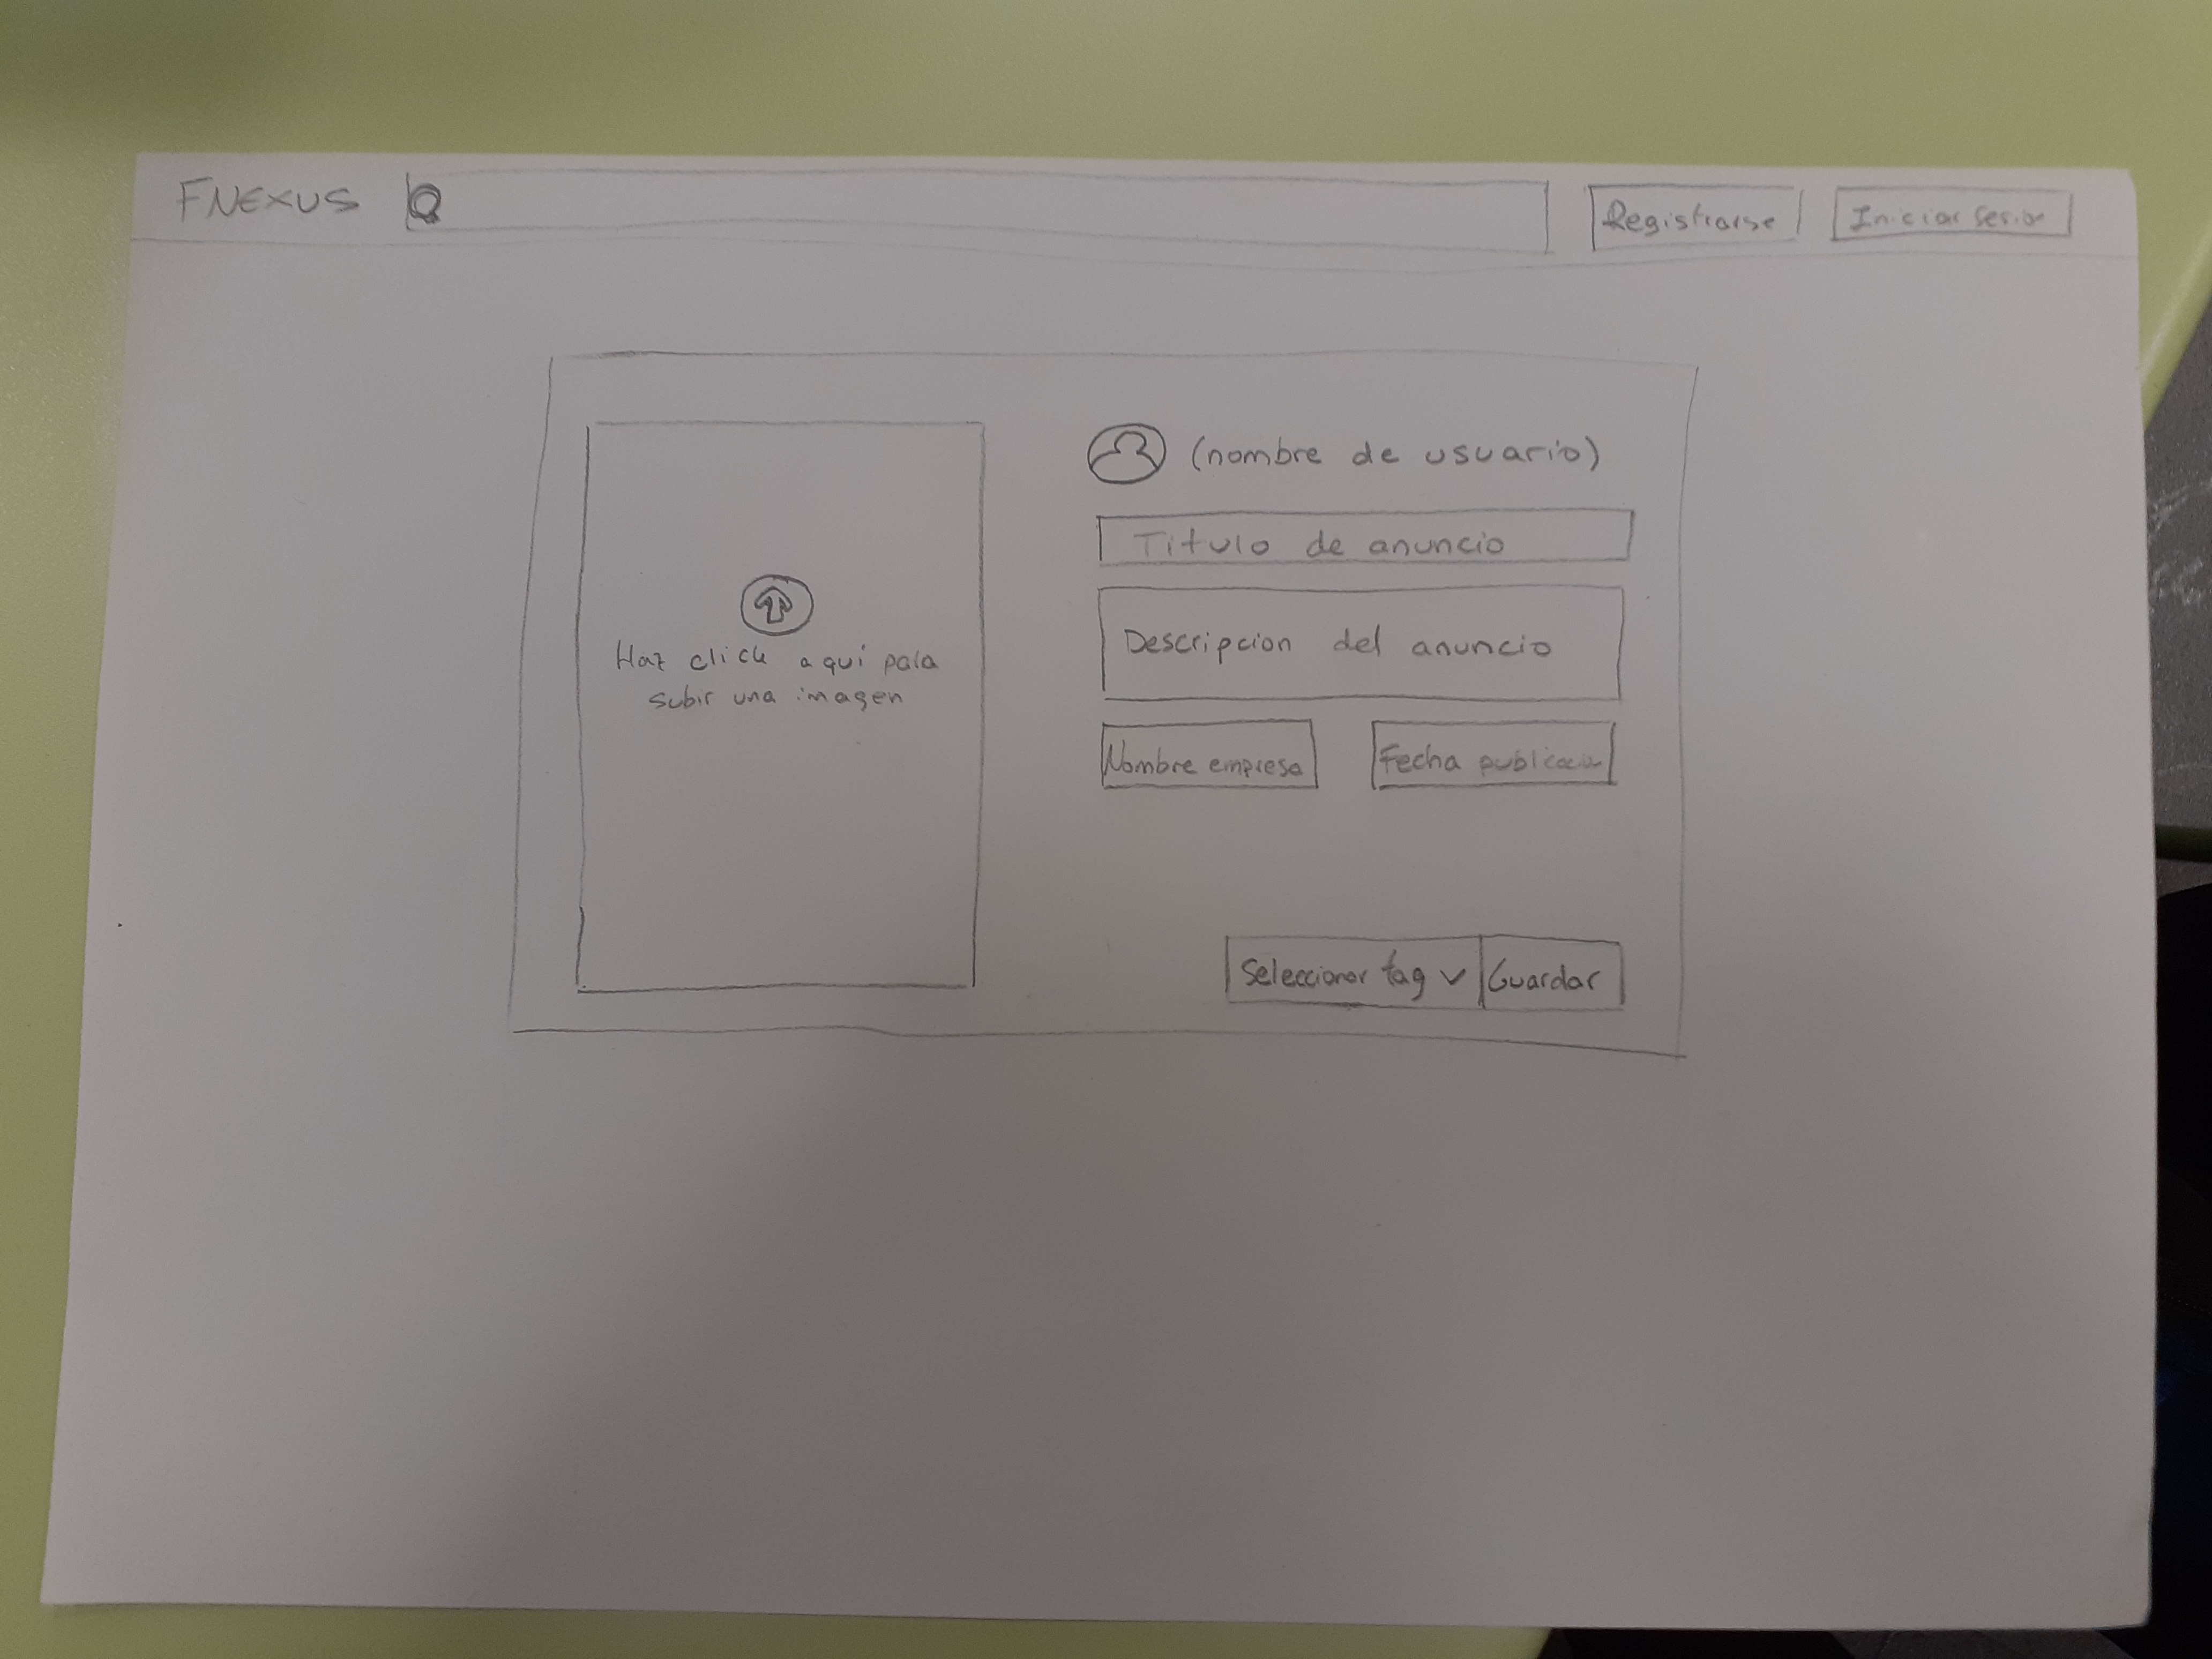 FNEXUS
Registrarse
Iniciar sesion
Haz click aquí para
subir una imagen
(nombre de usuario)
Titulo de anuncio
Descripcion del anuncio
Nombre empresa
Fecha publicacion
Seleccionar tag
Guardar